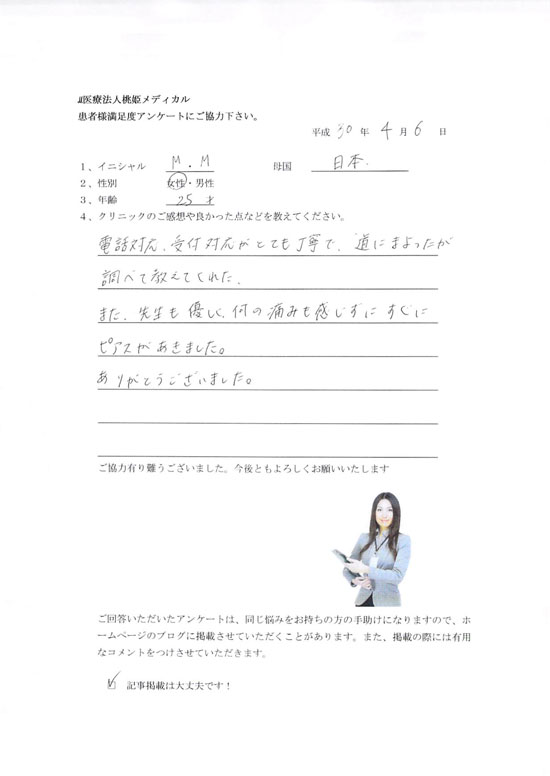 医療法人桃姫メディカル
患者様満足度アンケートにご協力下さい。
平成 30 年 4 月 6 日
1、イニシャル M.M 母国 日本.
2、性別 女性・男性
3、年齢 25才
4、クリニックのご感想や良かった点などを教えてください。
電話対応、受付対応がとても丁寧で、道にまよったが
調べて教えてくれた、
また、先生も優しく、何の痛みも感じずにすぐに
ピアスがあきました。
ありがとうございました。
ご協力有り難うございました。今後ともよろしくお願いいたします
ご回答いただいたアンケートは、同じ悩みをお持ちの方の手助けになりますので、ホ
ームページのブログに掲載させていただくことがあります。また、掲載の際には有用
なコメントをつけさせていただきます。
記事掲載は大丈夫です！